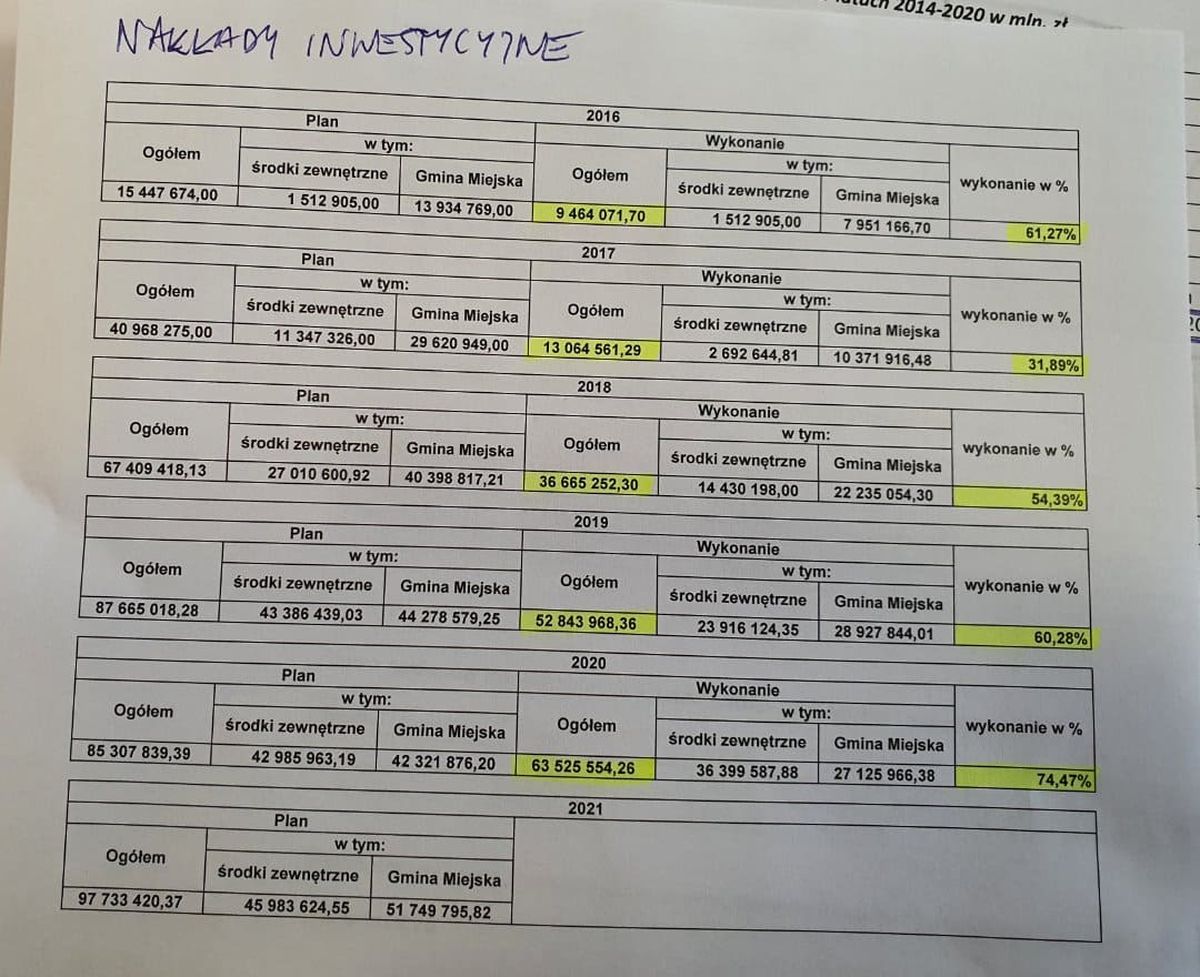 latach 2014-2020 w mln. zł
NAKŁADY INWESTYCYJNE
2016
Plan Wykonanie
Ogółem w tym: Ogółem w tym: wykonanie w %
środki zewnętrzne Gmina Miejska środki zewnętrzne Gmina Miejska
15 447 674,00 1 512 905,00 13 934 769,00 9 464 071,70 1 512 905,00 7 951 166,70 61,27%
2017
Plan Wykonanie
Ogółem w tym: Ogółem w tym: wykonanie w %
środki zewnętrzne Gmina Miejska środki zewnętrzne Gmina Miejska
40 968 275,00 11 347 326,00 29 620 949,00 13 064 561,29 2 692 644,81 10 371 916,48 31,89%
2018
Plan Wykonanie
Ogółem w tym: Ogółem w tym: wykonanie w %
środki zewnętrzne Gmina Miejska środki zewnętrzne Gmina Miejska
67 409 418,13 27 010 600,92 40 398 817,21 36 665 252,30 14 430 198,00 22 235 054,30 54,39%
2019
Plan Wykonanie
Ogółem w tym: Ogółem w tym: wykonanie w %
środki zewnętrzne Gmina Miejska środki zewnętrzne Gmina Miejska
87 665 018,28 43 386 439,03 44 278 579,25 52 843 968,36 23 916 124,35 28 927 844,01 60,28%
2020
Plan Wykonanie
Ogółem w tym: Ogółem w tym: wykonanie w %
środki zewnętrzne Gmina Miejska środki zewnętrzne Gmina Miejska
85 307 839,39 42 985 963,19 42 321 876,20 63 525 554,26 36 399 587,88 27 125 966,38 74,47%
2021
Plan
Ogółem w tym:
środki zewnętrzne Gmina Miejska
97 733 420,37 45 983 624,55 51 749 795,82